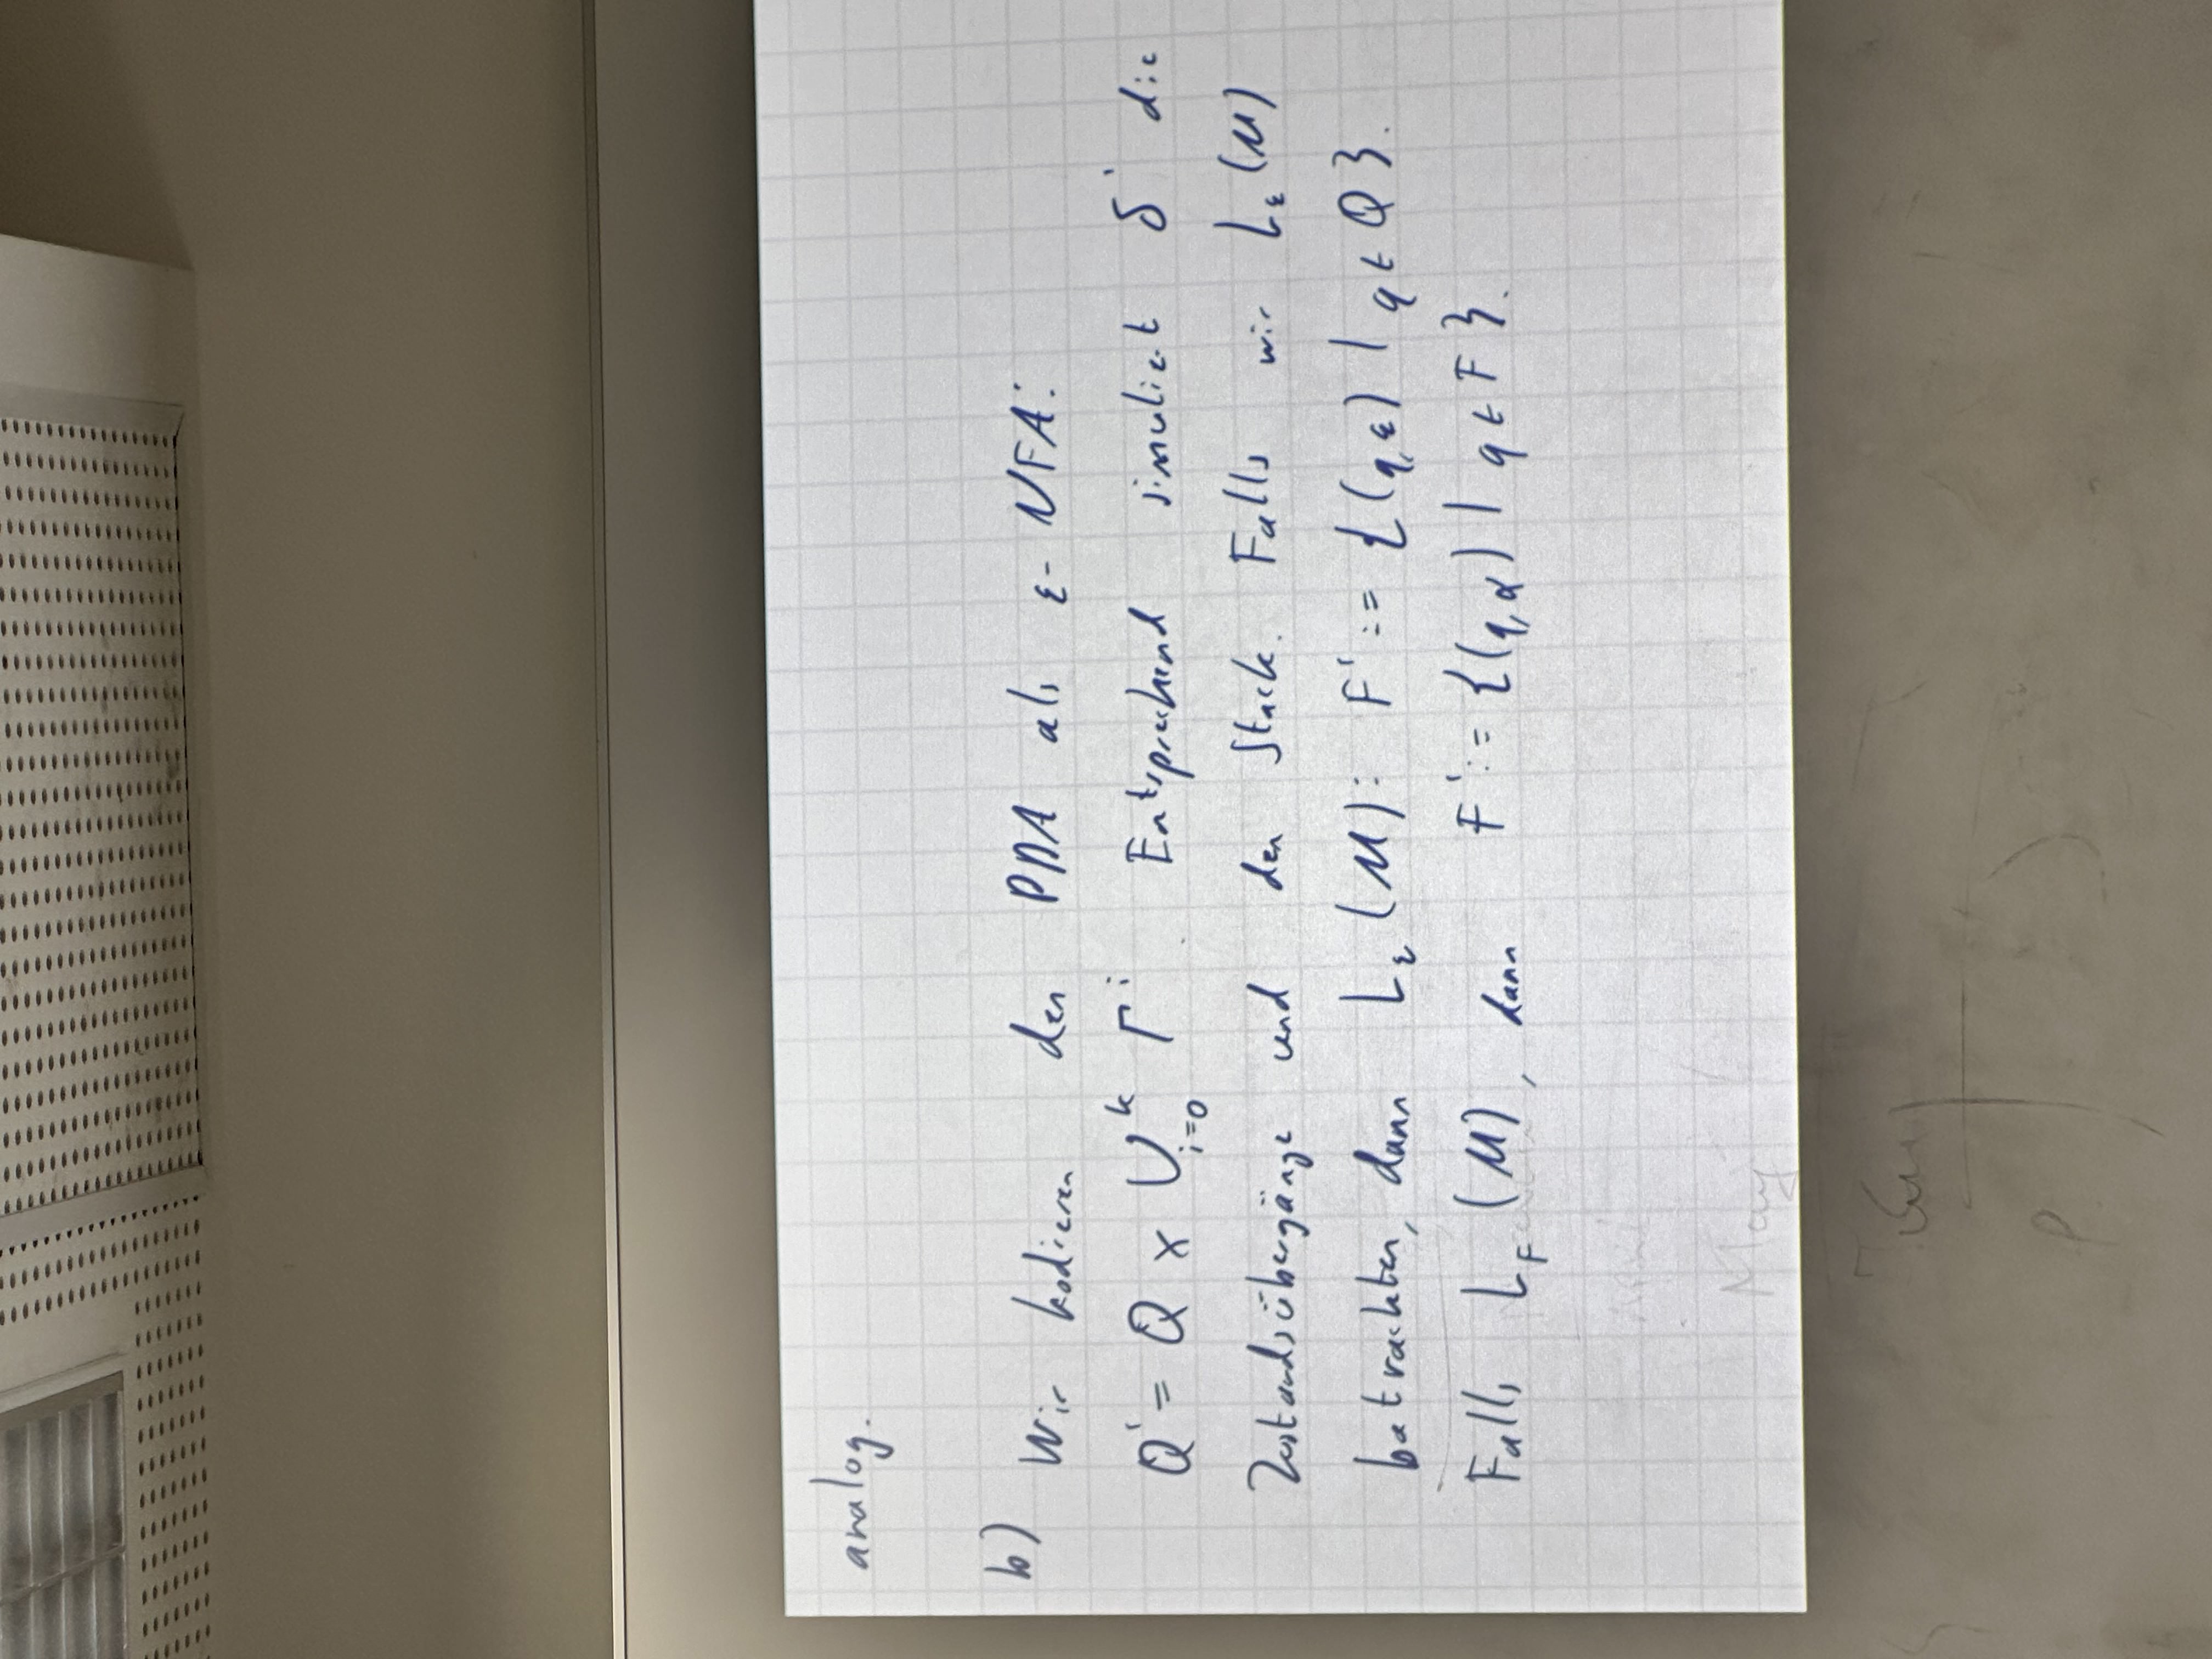 analog.
b) Wir kodieren den PDA als ε-NFA:
Q' = Q × ⋃_{i=0}^{k} Γ^i. Entsprechend simuliert δ' die
Zustandsübergänge und den Stack. Falls wir L_ε(M)
betrachten, dann L_ε(M): F' := {(q,ε) | q ∈ Q}.
Falls L_F(M), dann F' := {(q,α) | q ∈ F}.
May